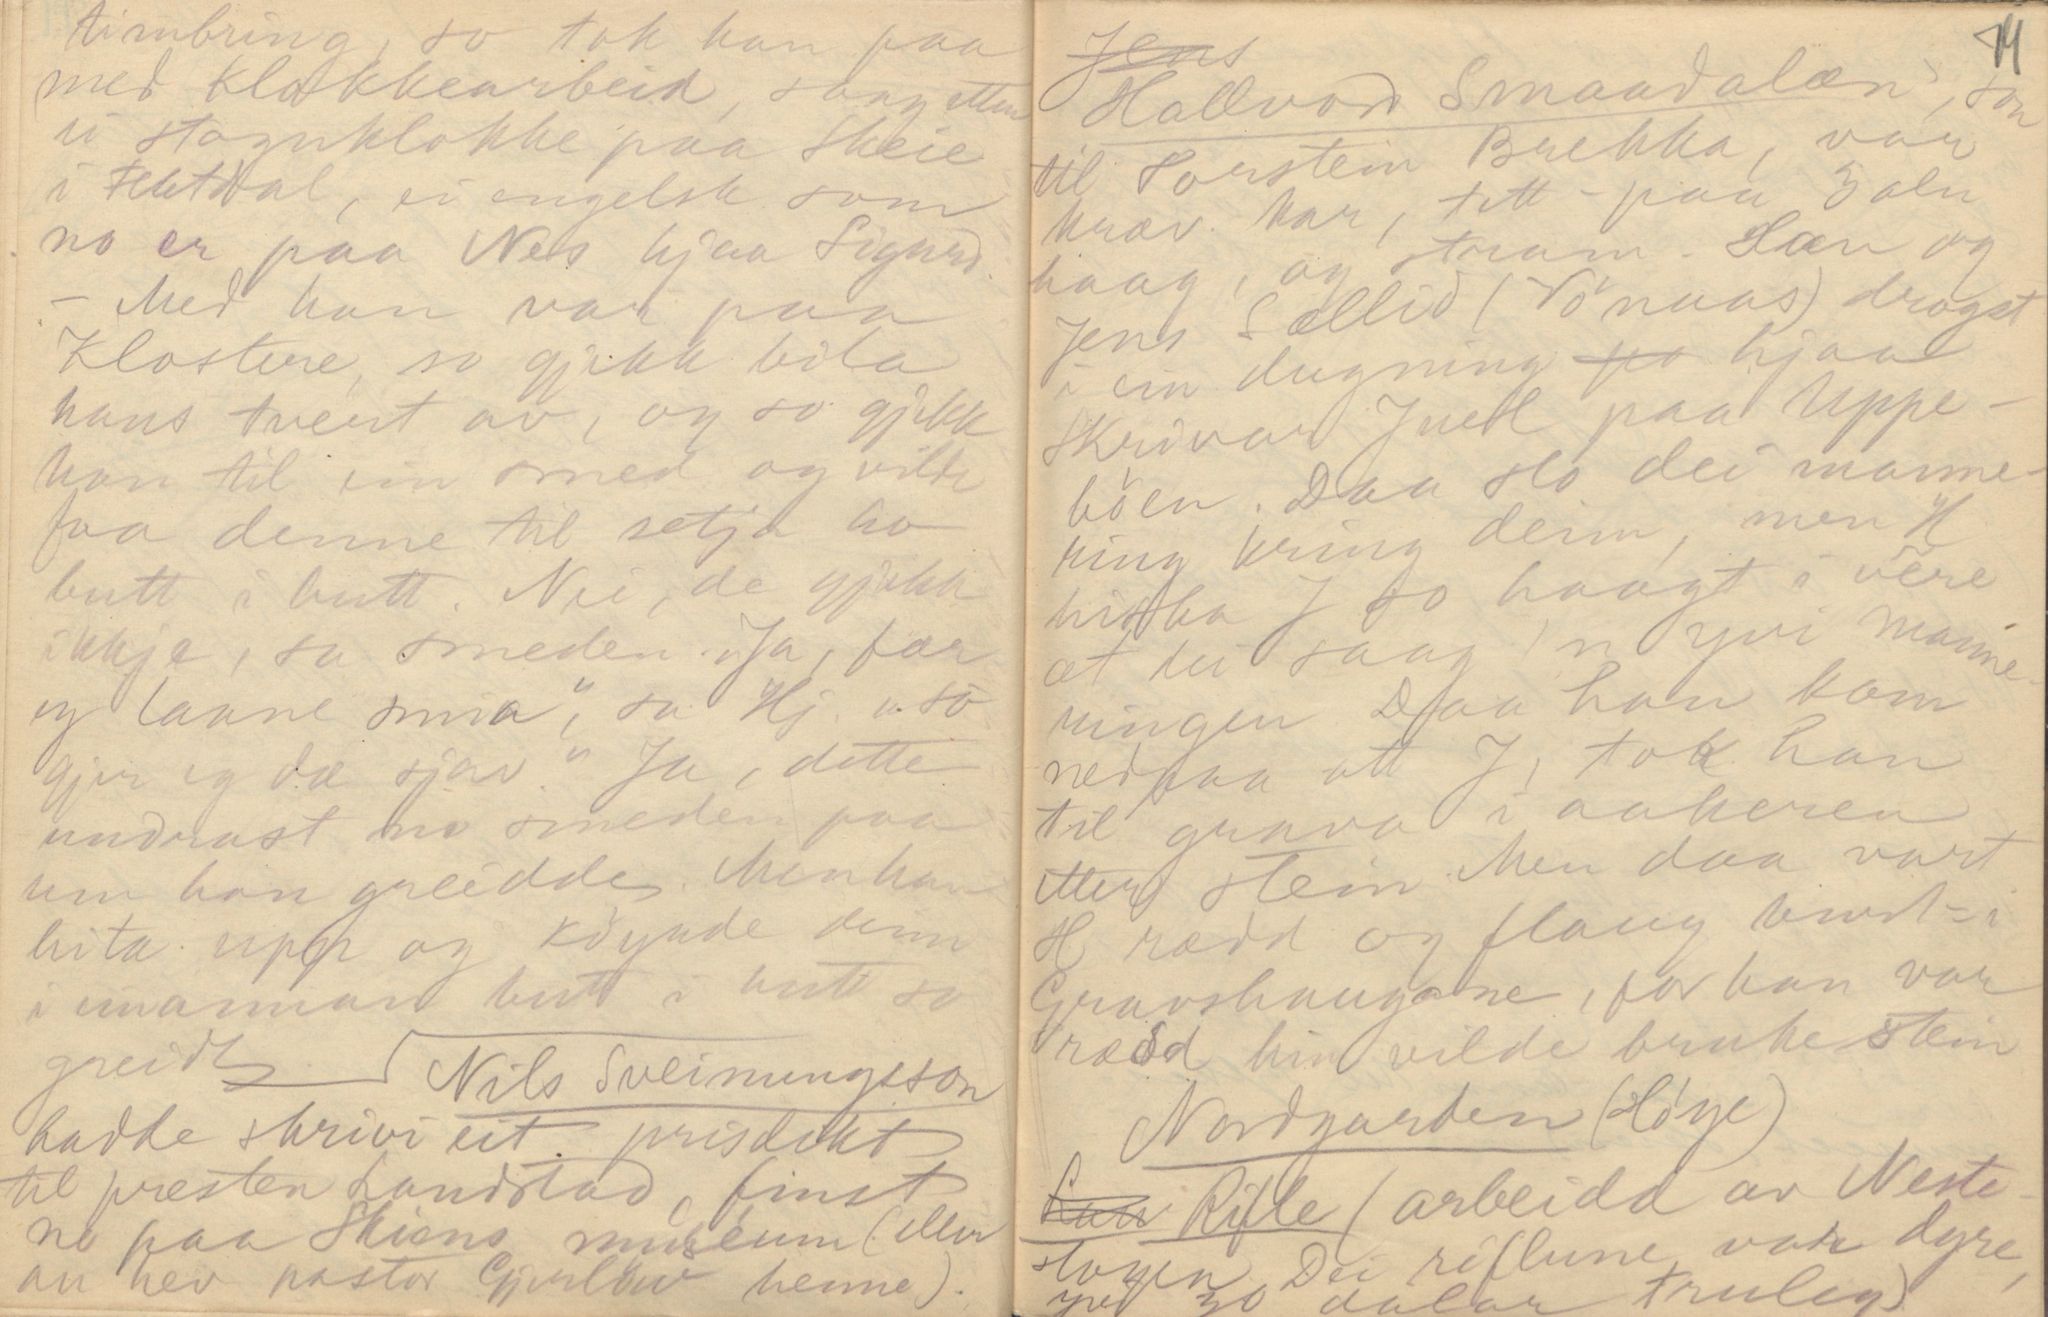 timbring, so tok han paa
med klokkearbeid, saag etter
ei stoguklokke paa Skeie
i Fektdal, ei engelsk som
no er paa Nes hjaa Sigurd.
– Med han var paa
Klostere, so gjekk bila
hans tvert av, og so gjekk
han til ein smed og vilde
faa denne til setja ho
butt i butt. Nei, de gjekk
ikkje, sa smeden. "Ja, fær
eg laane smia", sa Hj. "so
gjer eg dæ sjøv" Ja, dette
undrast no smeden paa
um han greidde. Men han
hita upp og köyrde deim
i einannan butt i butt so
greidt
Nils Sveinungsson
hadde skrivi eit prisdikt
til presten Landstad, finst
no paa Skiens museum (eller
au hev pastor Gjerløw henne).
14
Jens
Hallvord Smaadalæn, son
til Torstein Brekka, var
krav. kar, tett – paa 3 aln
haag, og stram. Han og
Jens Sællid (Vönaas) drogst
i ein dugning po hjaa
Skrivar Juel paa Uppe-
böen. Daa slo dei manne-
ring kring deim, men H
hiska J so haagt i vêre
at dei saag 'n yvi manne-
ringen Daa han kom
nedpaa att J, tok han
til grava i aakeren
etter stein. Men daa vart
H rædd og flaug burt-i
Gravshaugane, for han var
rædd hin vilde bruke stein
Nordgarden (Höye)
Rifle (arbeidd av Neste-
stogen Dei riflune var dyre,
yvi 30 dalar truleg)